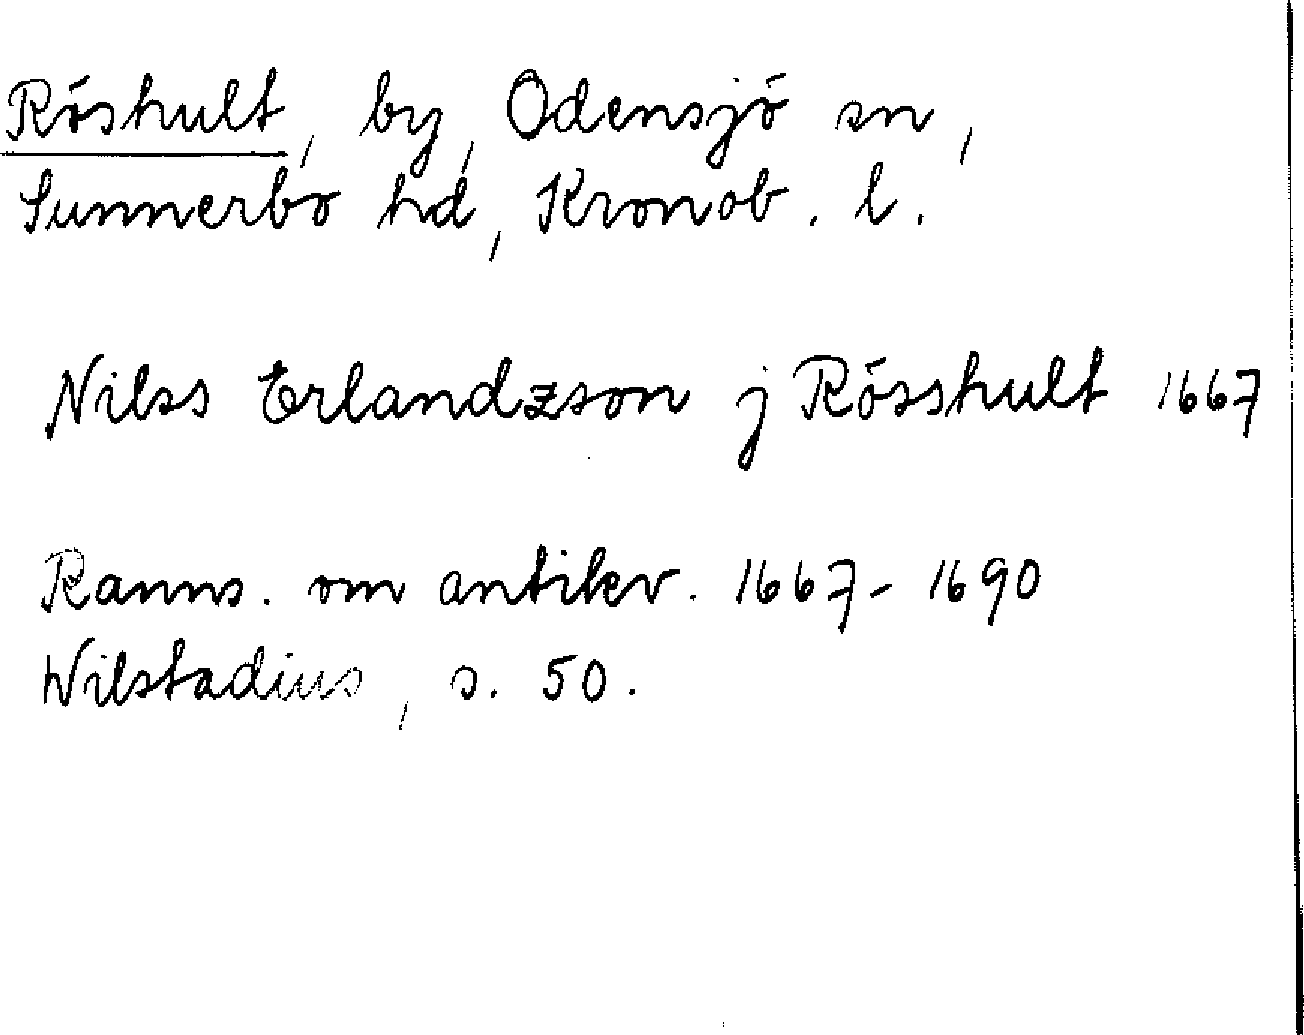 Röshult, by, Odensjö sn,
Sunnerbo hd, Kronob. l.
Nilss Erlandzson j Rösshult 1667
Ranns. om antikv. 1667-1690
Wilstadius, s. 50.